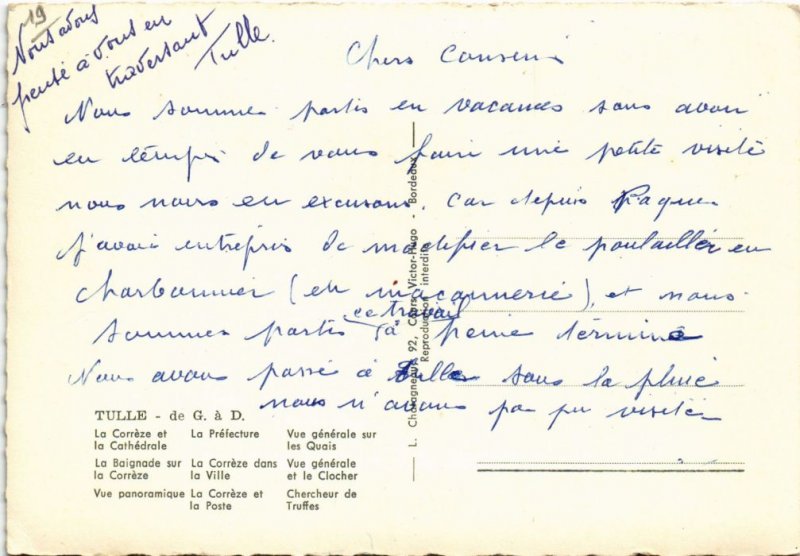 19
Nous avons
pensé à vous en
traversant
Tulle.
Chers Cousins
Nous sommes partis en vacances sans avoir
eu le temps de vous faire une petite visite
nous nous en excusons. Car depuis Paques
j'avais entrepris de modifier le poulailler en
charbonnier (en maçonnerie), et nous
sommes partis ce travail à peine terminé
Nous avons passé à Tulle sous la pluie
nous n'avons pas pu visiter
TULLE - de G. à D.
La Corrèze et la Cathédrale
La Préfecture
Vue générale sur les Quais
La Baignade sur la Corrèze
La Corrèze dans la Ville
Vue générale et le Clocher
Vue panoramique
La Corrèze et la Poste
Chercheur de Truffes
L. Chatagneau, 92, Cours Victor-Hugo - Bordeaux
Reproduction interdite